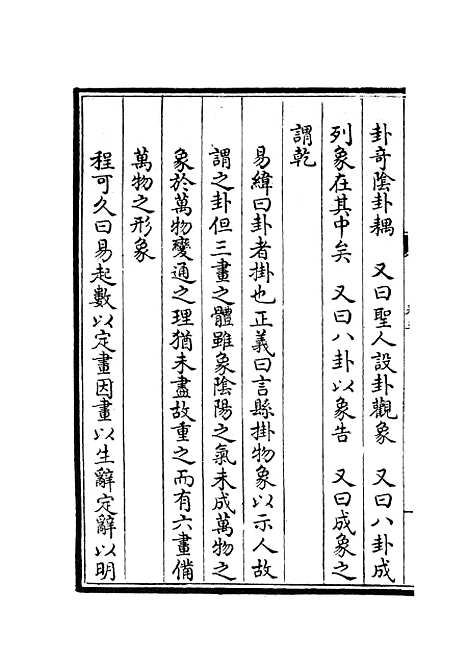 卦奇陰卦耦　又曰聖人設卦觀象　又曰八卦成
列象在其中矣　又曰八卦以象告　又曰成象之
謂乾
易緯曰卦者掛也正義曰言縣掛物象以示人故
謂之卦但三畫之體雖象陰陽之氣未成萬物之
象於萬物變通之理猶未盡故重之而有六畫備
萬物之形象
程可久曰易起數以定畫因畫以生辭定辭以明